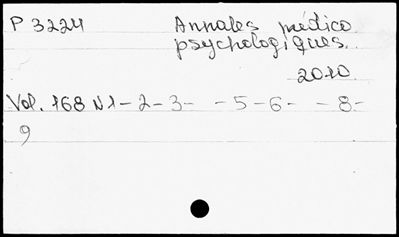 P 3224 Annales médico
psychologiques.
2010
Vol. 168 N1-2-3- -5-6- -8-
9